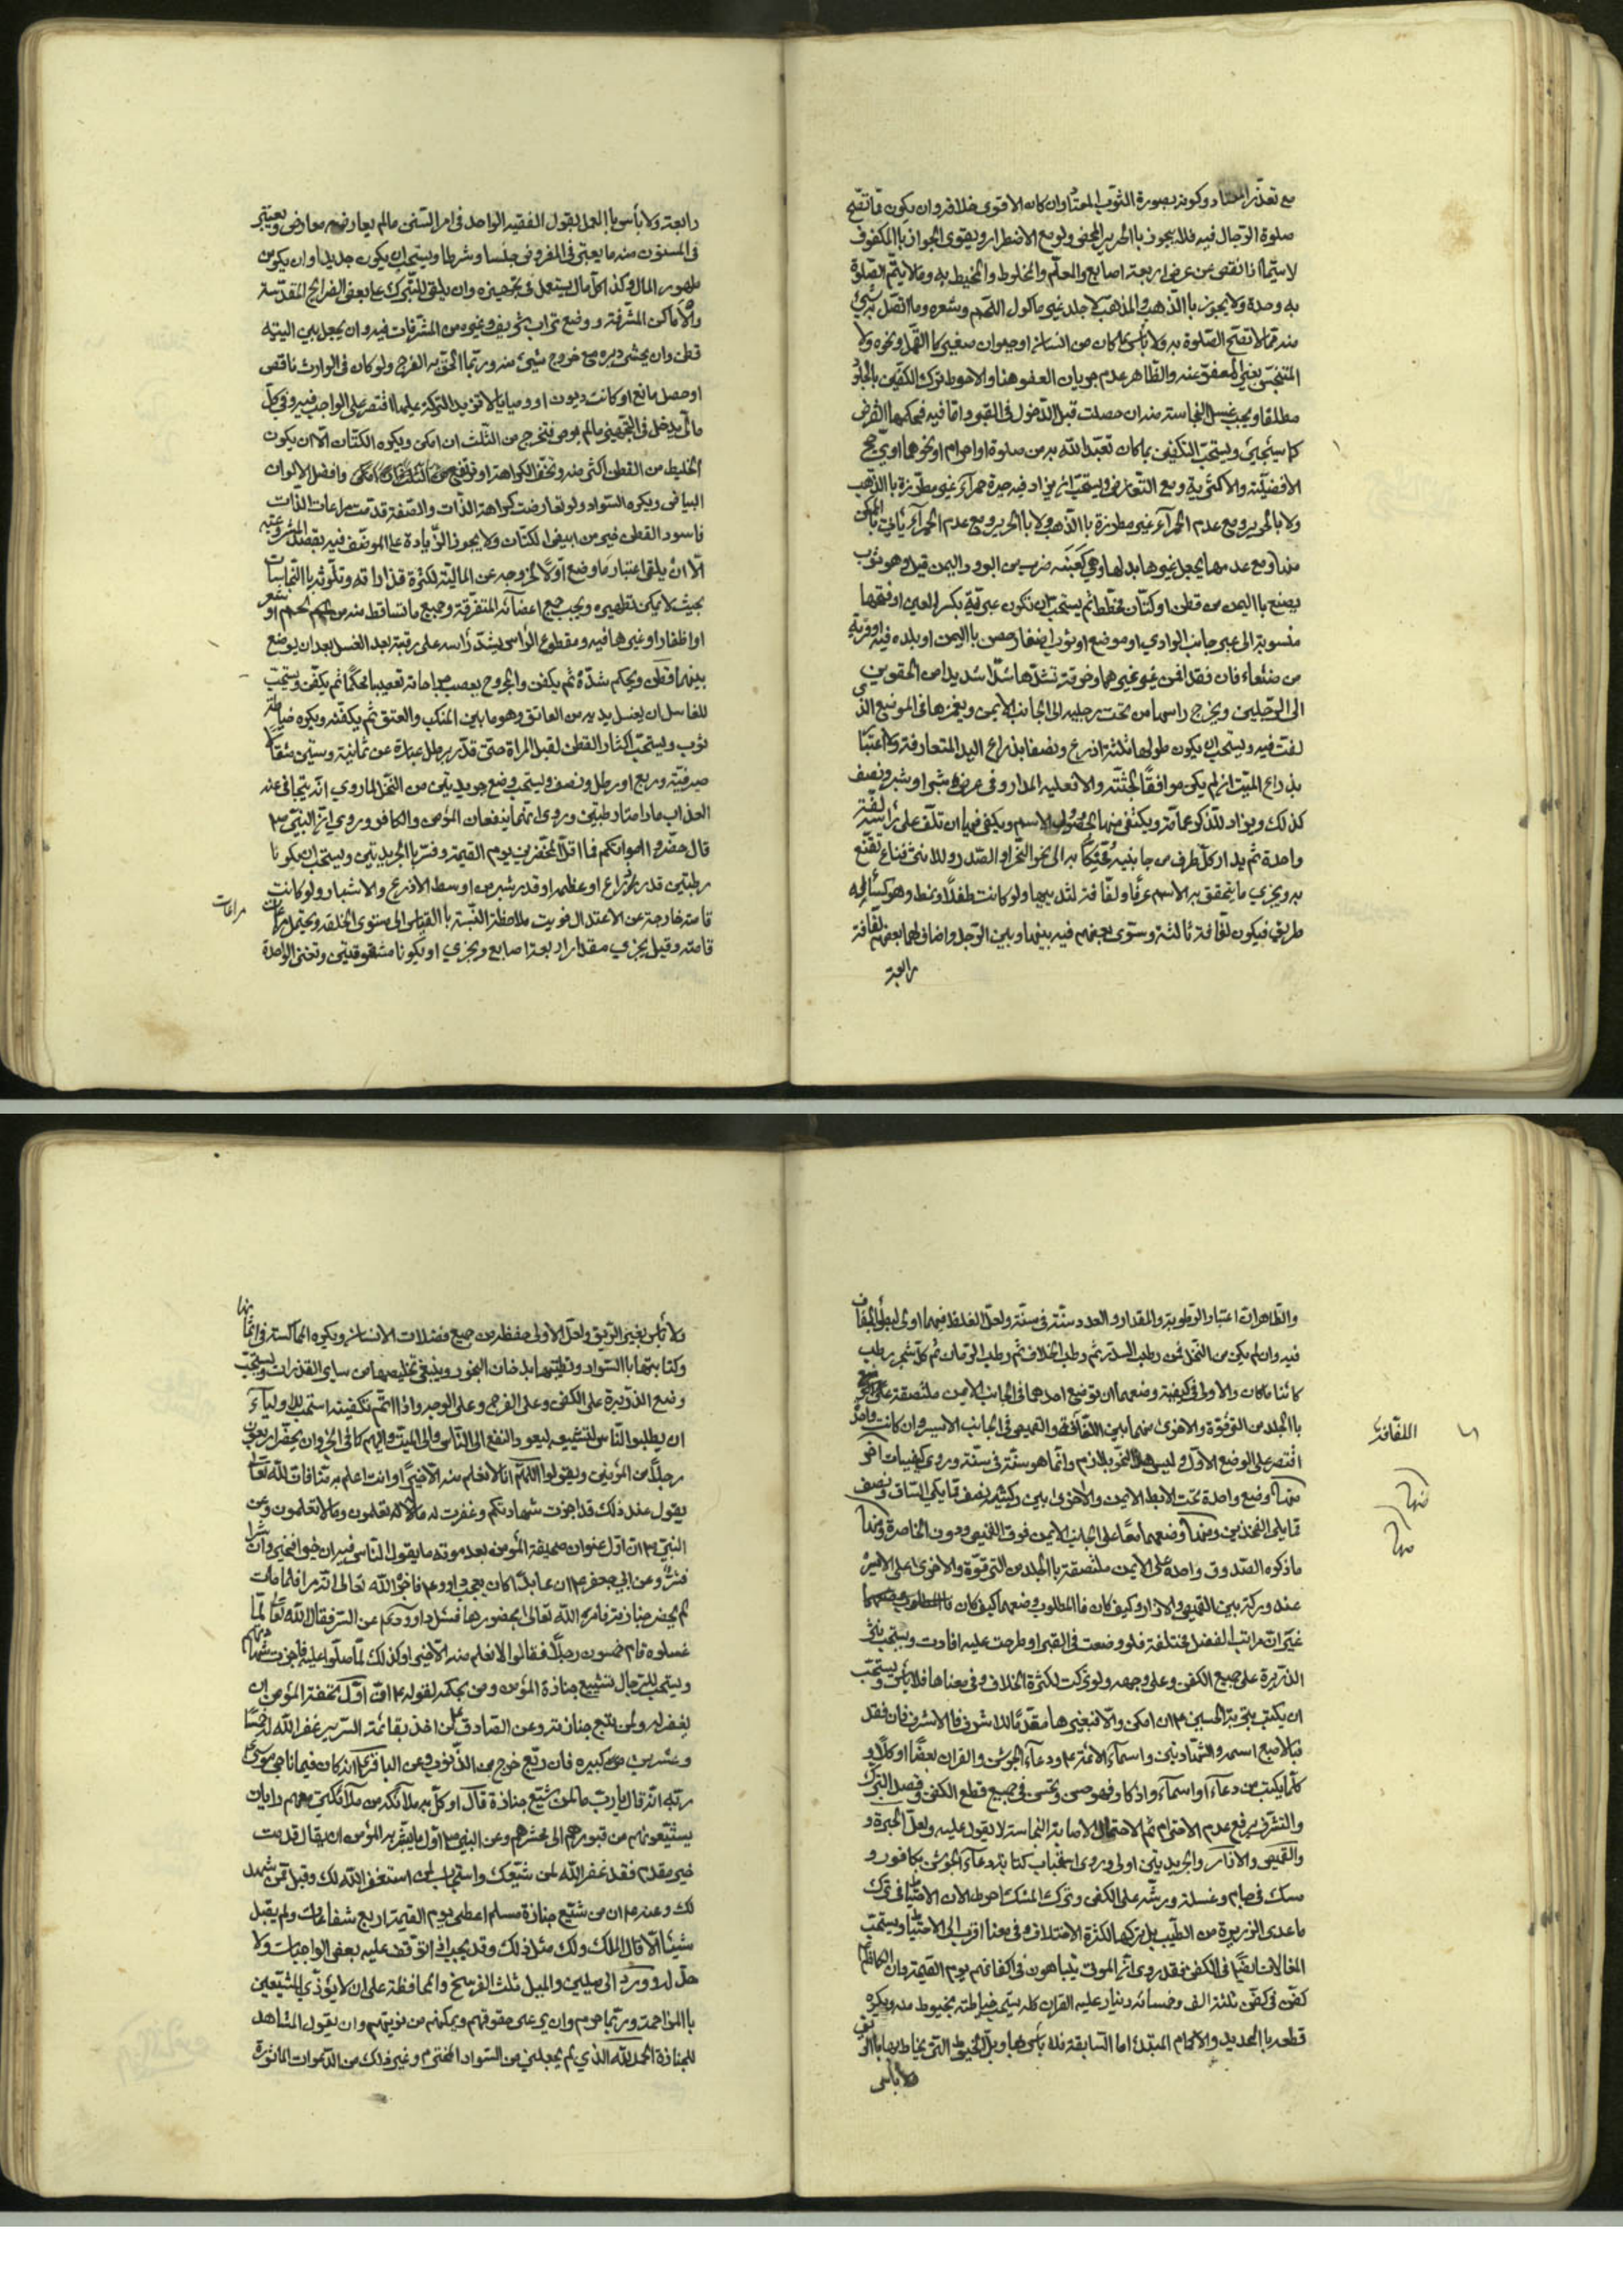 مع تعذّر المعتاد وكونه بصورة الثوب المعتاد وان كان الاقوى خلافه وان يكون ممّا تصحّ
صلوة الرّجال فيه فلا يجوز با الحرير المحض ولو مع الاضطرار ويقوى الجواز با المكفوف
لا سيّما اذا نقص عن عرض اربعة اصابع والمعلّم والمخلوط والمخيط به وما لا يتمّ الصلوة
به وحده ولا يجوز با الذّهب والمذهّب ولا جلد غير ماكول اللّحم وشعره وما اتّصل به شئ
منه ممّا لا تصحّ الصّلوة به ولا بأس بما كان من انسان او حيوان صغير كا القمّل ونحوه ولا
المتنجّس بغير المعفوّ عنه والظّاهر عدم جريان العفو هنا والاحوط ترك التكفين بالجلود
مطلقا ويجب غسل النجاسة منه ان حصلت قبل الدّخول في القبر وامّا فيه فحكمها القرض
كما سيجئ ويستحبّ التكفين بما كان تعبّد للّه به من صلوة او احرام او نحوهما او يرجّح
الافضليّة والاكثرية ومع التعارض ويستحبّ ان يزاد فيه حبرة حمراء غير مطرّزة با الذّهب
ولا بالحرير ومع عدم الحمراء غير مطرزة با الذّهب ولا با الحرير ومع عدم الحمراء يأتي با الممكن
منها ومع عدمها يجعل غيرها بدلها وهي كعنبة ضرب من البرود اليمن قيل وهو ثوب
يصنع با اليمن من قطن او كتّان مخطّط ثم يستحب ان تكون عبريّة بكسر العين او فتحها
منسوبة الى عبر جانب الوادي او موضع او ثوب اضفار حصن با اليمن او بلده فيه او قرية
من صنعاء فان فقد افمن غير غيرهما وخرقة تشدّها شدّا شديدا من الحقوين
الى الرّجلين ويخرج راسها من تحت رجليه الى الجانب الايمن ويغمزها في الموضع الذي
لفت فيه ويستحب ان يكون طولها ثلثة اذرع ونصفا بذراع اليد المتعارفة ولا اعتبار
بذراع الميّت ان لم يكن موافقًا لجثّته والا فعليه المدار وفي عرضها شبرا او شبر ونصف
كذلك ويزاد للذّكر عمّامة ويكتفى منها بحصول الاسم ويكفي فيها ان تلفّ على رأسه لفّة
واحدة ثم يدار كلّ طرف من جانبيه محنّكا به الى نحو النّحر او الصّدر وللانثى قناع تقنّع
به ويجزي ما يتحقق به الاسم عرفا ولفّافة لثدييها ولو كانت طفلًا ونمط وهو كساء له
طرائق فيكون لفافة ثالثة وسوّى بعضهم فيه بينها وبين الرّجل واضاف لهما بعضهم لفافة
رابعة
رابعة ولا بأس با العمل بقول الفقيه الواحد في امر السّنن ما لم يعارضه معارض ويعتبر
في المسنون منه ما يعتبر في المفروض جنسا وشرطا ويستحب ان يكون جديدا وان يكون من
طهور المال وكذا كلّ مال يستعمل في تجهيزه وان يلقى للتبرّك على بعض الضرايح المقدّسة
والأماكن المشرّفة ووضع تراب شريف وغيره من المشرّفات فيه وان يجعل بين اليتيه
قطن وان يحشى دبره مع خروج شيئ منه وربّما الحق به الفرج ولو كان في الوارث ناقص
او حصل مانع او كانت ديون او وصايا لا تزيد التركة عليها اقتصر على الواجب فيه وفي كلّ
ما يدخل في التجهيز ما لم يوص فتخرج من الثّلث ان امكن ويكره الكتّان الّا ان يكون
الخليط من القطن اكثر منه وتخف الكراهة او ترتفع وافضل الالوان
البياض ويكره السّواد ولو تعارضت كراهة الذّات والصّفة قدّمت مراعات الذّات
فاسود القطن خير من ابيض الكتّان ولا يجوز الزّيادة على الموظّف فيه بقصد المشروعيّة
الّا ان يلقى اعتبار ما وضع اوّلا لخروجه عن الماليّة لكثرة قذاراته وتلوّثه با النّجاسات
بحيث لا يمكن تطهيره ويجب جمع اعضائه المتفرّقة وجميع ما تساقط منه من لحم او شعر
او اظفار او غيرها فيه ومقطوع الرّاس يشدّ رأسه على رقبة بعد الغسل بعد ان يوضع
بينهما قطن ويحكم شدّه ثم يكفن والمجروح يعصب جراحاته تعصيبا محكمًا ثم يكفّن ويستحبّ
للغاسل ان يغسل يديه من العاتق وهو ما بين المنكب والعنق ثم يكفّنه ويكره خياطة
ثوب ويستحبّ اكثار القطن لقبل المراة حتى قدّر برطل عبارة عن ثمانية وستّين مثقالًا
صيرفيّة وربع او رطل ونصف ويستحب وضع جريدتين من النّخل لما روي انّه يتجافى عنه
العذاب ما دامتا رطبتين وروى انّهما ينفعان المؤمن والكافر وروي انّ النبي ص
قال خضّروا امواتكم فما اقلّ المخضّرين يوم القيمة وفسّر با الجريدتين ويستحب ان يكونا
رطبتين قدر ذراع او عظمه او قدر شبر من اوسط الاذرع والاشبار ولو كانت
قامته خارجة عن الاعتدال قويت ملاحظة النّسبة با القياس الى مستوى الخلقة ويحتمل مراعات
مراعات
قامته وقيل يجزي مقدار اربعة اصابع ويجزي او يكونا مشقوقتين وتجزئ الواحدة
والظّاهر انّ اعتبار الرّطوبة والمقدار والعدد سنّة في سنّة ولعلّ الغلظ فيهما اولى لبطؤ الجفاف
فيه وان لم يكن من النّخل فمن رطب السّدر ثم رطب الخلاف ثم رطب الرّمان ثم كلّ شجر رطب
كائنا ما كان والاولى في كيفية وضعهما ان توضع احدها في الجانب الايمن ملتصقة على
با الجلد من التّرقوة والاخرى منهما بين اللّفافة والقميص في الجانب الايسر وان كانت واحدةً
اللفافة
اقتصر على الوضع الاوّل وليس هذا النّحو بلازم وانّما هو سنّة في سنّة وروى كيفيات اخر
منها وضع واحدة تحت الابط الايمن والاخرى بين ركبتيه نصف ممّا يلي السّاق ونصف
منها
ممّا يلي الفخذين ومنها وضعهما معًا على الجانب الايمن فوق القميص ودون الخاصرة ومنها
منها
ما ذكره الصّدوق واحدة على الايمن ملتصقة با الجلد من الترقوّة والاخرى على الايسر
عند وركه بين القميص والازار وكيف كان فا المطلوب وضعهما كيف كان
غير انّ مراتب الفضل مختلفة فلو وضعت في القبر او طرحت عليه افادت ويستحب نثر
الذّريرة على جميع الكفن وعلى وجهه ولو تركت لكثرة الخلاف وفي معناها فلا بأس ويستحبّ
ان يكتب بتربة الحسين ع ان امكن والّا فبغيرها مقدّما للاشرف فا الاشرف فان فقد
فبالاصبع اسمه والشّهادتين واسماء الائمّة ع ودعاء الجوشن والقران بعضًا او كلًّا و
كلّما يكتب من دعاء او اسماء واذكار فهو حسن وحتّى في جميع قطع الكفن وقصد التبرّك
والتشرّف يرفع عدم الاحترام ثم الاحتمال الاصابة النجاسة لا يعّول عليه ولعلّ الحبرة و
والقميص والازار والجريدتين اولى وروى استحباب كتابة دعاء الجوشن بكافور و
مسك في جام وغسله ورشّه على الكفن وترك المسك احوط الان الاحتياط في ترك
ما عدى الذريرة من الطّيب بل تركها لكثرة الاختلاف في معناها اقرب الى الاحتياط ويستحبّ
المغالات ايضًا في الكفن فقد روى انّ الموتى يتباهون في اكفانهم يوم القيمة وان الكاظم ع
كفّن في كفن ثلثة الف وخمسائه دنيار عليه القران كله يستحب خياطته بخيوط منه ويكره
قطعه با الحديد والاكمام المبتدئة امّا السّابقة فلا بأس بها وبلّ الخيوط التي يخاط بها با الريق
ولا بأس
ولا بأس بغير الرّيق ولعلّ الاولى حفظه من جميع فضلات الانسان ويكره المماكسة في اثمانها
وكتابتها با السّواد وتطييبها بدخان البخور وينبغي تخليصها من ساير القذرات ويستحبّ
وضع الذّريرة على الكفن وعلى الفرج وعلى الوجه واذا اتمّ تكفينه استحب للاولياء
ان يطلبوا النّاس لتشييعه ليعود النفع الى النّاس والى الميّت واليهم كما في الخبر وان يحضر اربعون
رجلًا من المؤمنين ويقولوا اللّهم انّا لا نعلم منه الّا خيرًا وانت اعلم به منّا فان اللّه تعالى
يقول عند ذلك قد اجزت شهادتكم وغفرت له ما لا تعلمون وعن
النبيّ ص انّ اوّل عنوان صحيفة المؤمن بعد موته ما يقول النّاس فيه ان خيرا فخير وان شرا
فشرّ وعن ابي جعفر ع ان عابدًا كان يعجب داود ع فاخبر اللّه تعالى انّه مراء فلما مات
لم يحضر جنازته فامره اللّه تعالى بحضورها فسئل داود ع عن السّر فقال اللّه تعالى لمّا
غسلوه قام خمسون رجلًا فقالوا لا نعلم منه الّا خيرا وكذلك لمّا صلّوا عليه فاجزت شهادتهم
ويستحب للرّجال تشييع جنازة المؤمن ومن بحكمه لقوله ع انّ اوّل تحفة المؤمن ان
يغفر له ولمن يتبع جنازته وعن الصّادق ع من اخذ بقائمة السّرير غفر اللّه له خمسًا
وعشرين كبيرة فان ربّع خرج من الذّنوب وعن الباقر ع انّه كان فيما ناجى موسى
ربّه انّه قال يا ربّ ما لمن شيّع جنازة قال اوكّل به ملآئكه من ملآئكتي معهم رايات
يشيّعونهم من قبورهم الى محشرهم وعن النبي ص اوّل ما يبشّر به المؤمن ان يقال قدمت
خير مقدم فقد غفر اللّه لمن شيّعك واستجاب لمن استغفر اللّه لك وقبل ممّن شهد
لك وعنه ع ان من شيّع جنازة مسلم اعطى يوم القيمة اربع شفاعات ولم يقل
شيئا الّا قال الملك ولك مثل ذلك وقد يجب اذا توقف عليه بعض الواجبات ولا
حدّ له وورد الى ميلين والميل ثلث الفرسخ والمحافظة على ان لا يؤذي المشيّعين
با المزاحمة وربّما حرم وان يرعى حقوقهم ويمكّنهم من نوبتهم وان يقول المشاهد
للجنازة الحمد للّه الذي لم يجعلني من السّواد المخترم وغير ذلك من الدّعوات المأثورة